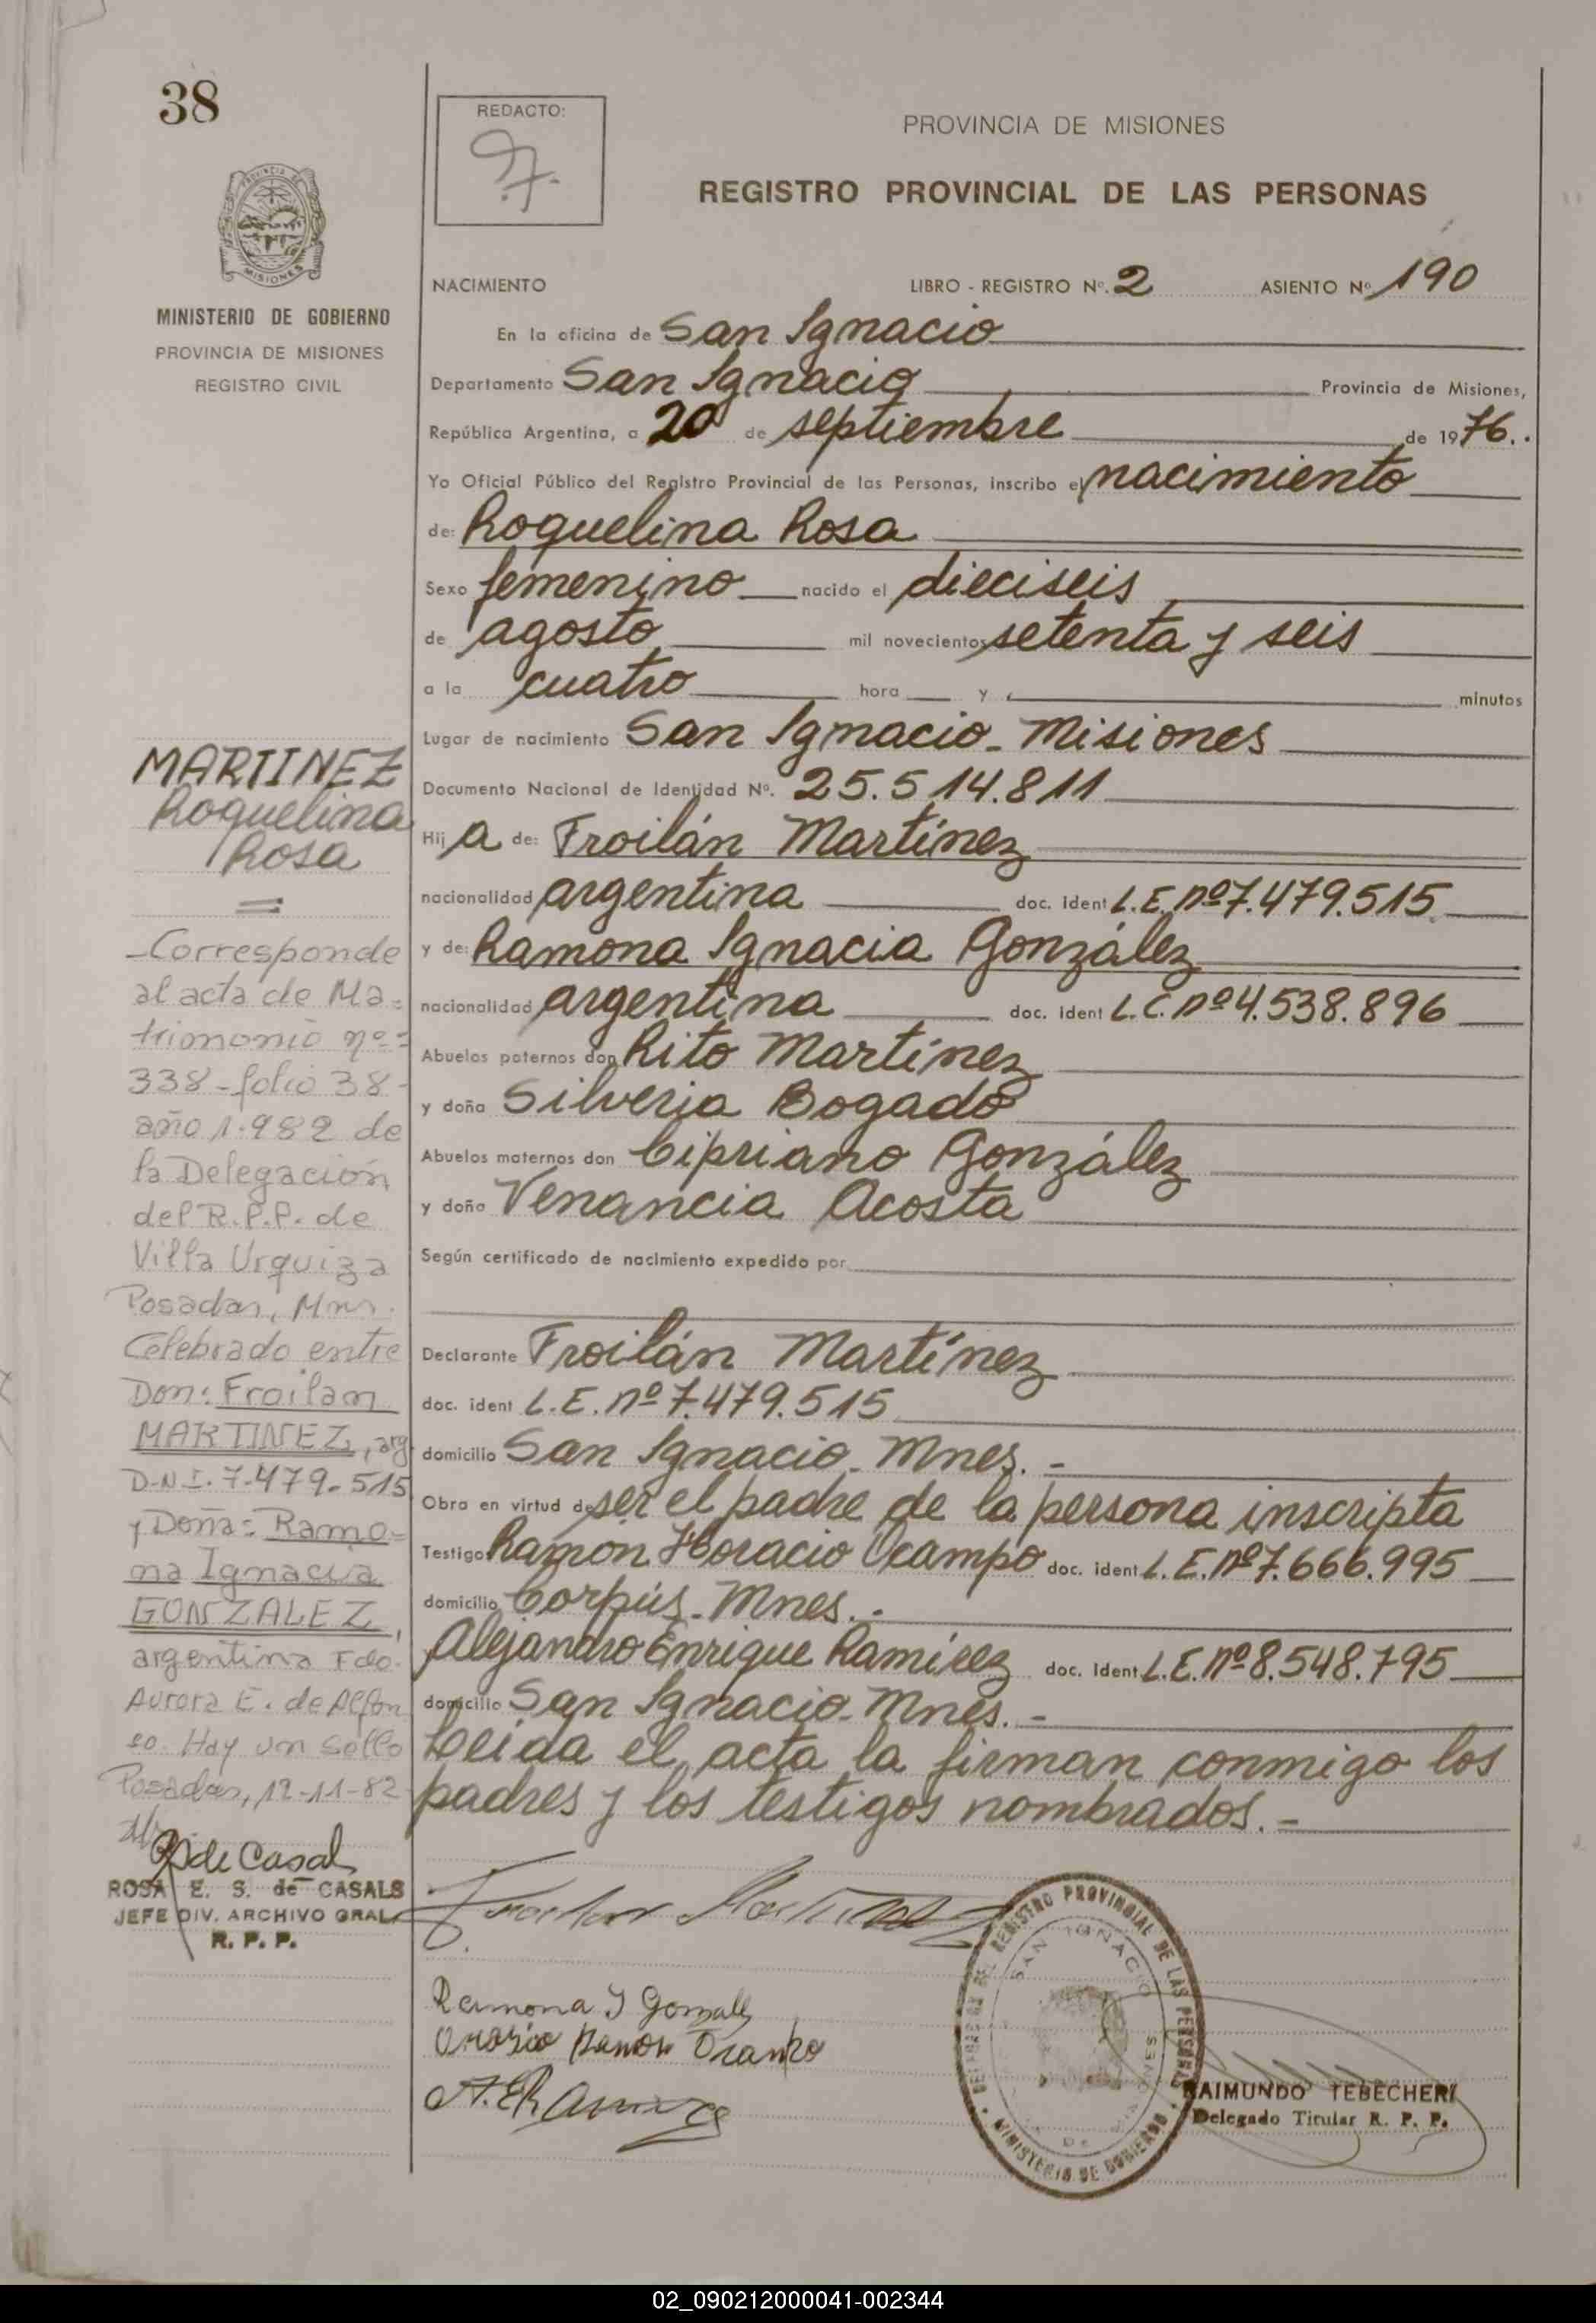 38
REDACTO:
PROVINCIA DE MISIONES
REGISTRO PROVINCIAL DE LAS PERSONAS
MISIONES
MINISTERIO DE GOBIERNO
PROVINCIA DE MISIONES
REGISTRO CIVIL
NACIMIENTO LIBRO - REGISTRO Nº. 2 ASIENTO Nº 190
En la oficina de San Ignacio
Departamento San Ignacio Provincia de Misiones,
República Argentina, a 20 de septiembre de 1976..
Yo Oficial Público del Registro Provincial de las Personas, inscribo el nacimiento
de: Roquelina Rosa
Sexo femenino nacido el dieciseis
de agosto mil novecientos setenta y seis
a la cuatro hora y minutos
Lugar de nacimiento San Ignacio - Misiones
Documento Nacional de Identidad Nº. 25.514.811
Hij a de: Froilán Martínez
nacionalidad argentina doc. ident L.E. nº 7.479.515
y de: Ramona Ignacia González
nacionalidad argentina doc. ident L.C. nº 4.538.896
Abuelos paternos don Rito Martínez
y doña Silveria Bogado
Abuelos maternos don Cipriano González
y doña Venancia Acosta
Según certificado de nacimiento expedido por
Declarante Froilán Martínez
doc. ident L.E. nº 7.479.515
domicilio San Ignacio - Mnes. -
Obra en virtud de ser el padre de la persona inscripta
Testigos Ramón Horacio Ocampo doc. ident L.E. nº 7.666.995
domicilio Corpús - Mnes. -
Alejandro Enrique Ramírez doc. ident L.E. nº 8.548.795
domicilio San Ignacio - Mnes. -
Leida el acta la firman conmigo los
padres y los testigos nombrados. -
MARTINEZ
Roquelina
Rosa
=
- Corresponde
al acta de Ma=
trimonio nº=
338 - folio 38 -
año 1.982 de
la Delegación
del R.P.P. de
Villa Urquiza
Posadas, Mnes.
Celebrado entre
Don: Froilan
MARTINEZ, arg
D.N.I. 7.479.515
y Doña: Ramo=
na Ignacia
GONZALEZ,
argentina Fdo.
Aurora E. de Alfon
so. Hay un sello
Posadas, 12-11-82
de Casals
ROSA E. S. de CASALS
JEFE DIV. ARCHIVO GRAL
R. P. P.
Froilan Martinez
Ramona I Gonzalez
Orasio Ramon Ocampo
A.E Ramirez
REGISTRO PROVINCIAL DE LAS PERSONAS
MINISTERIO DE GOBIERNO
SAN IGNACIO
RAIMUNDO TEBECHERI
Delegado Titular R. P. P.
02_090212000041-002344